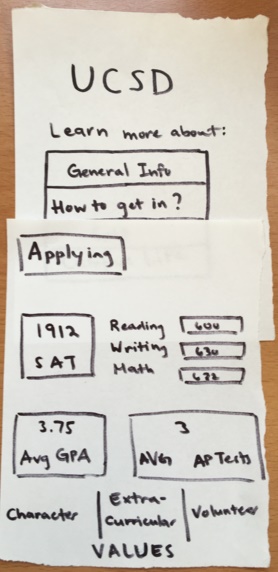 UCSD
Learn more about:
General Info
How to get in?
Applying
1912
SAT
Reading 600
Writing 630
Math 682
3.75
Avg GPA
3
AVG AP Tests
Character
Extra-
Curricular
Volunteer
VALUES